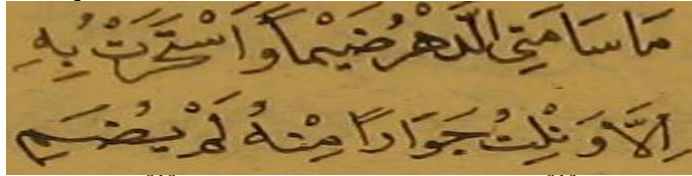 مَا سَامَنِى الدَّهْرُ ضَيْماً وَاسْتَجَرْتُ بِهِ
اِلَّا وَنِلْتُ جَوَاراً مِنْهُ لَمْ يُضَمِ